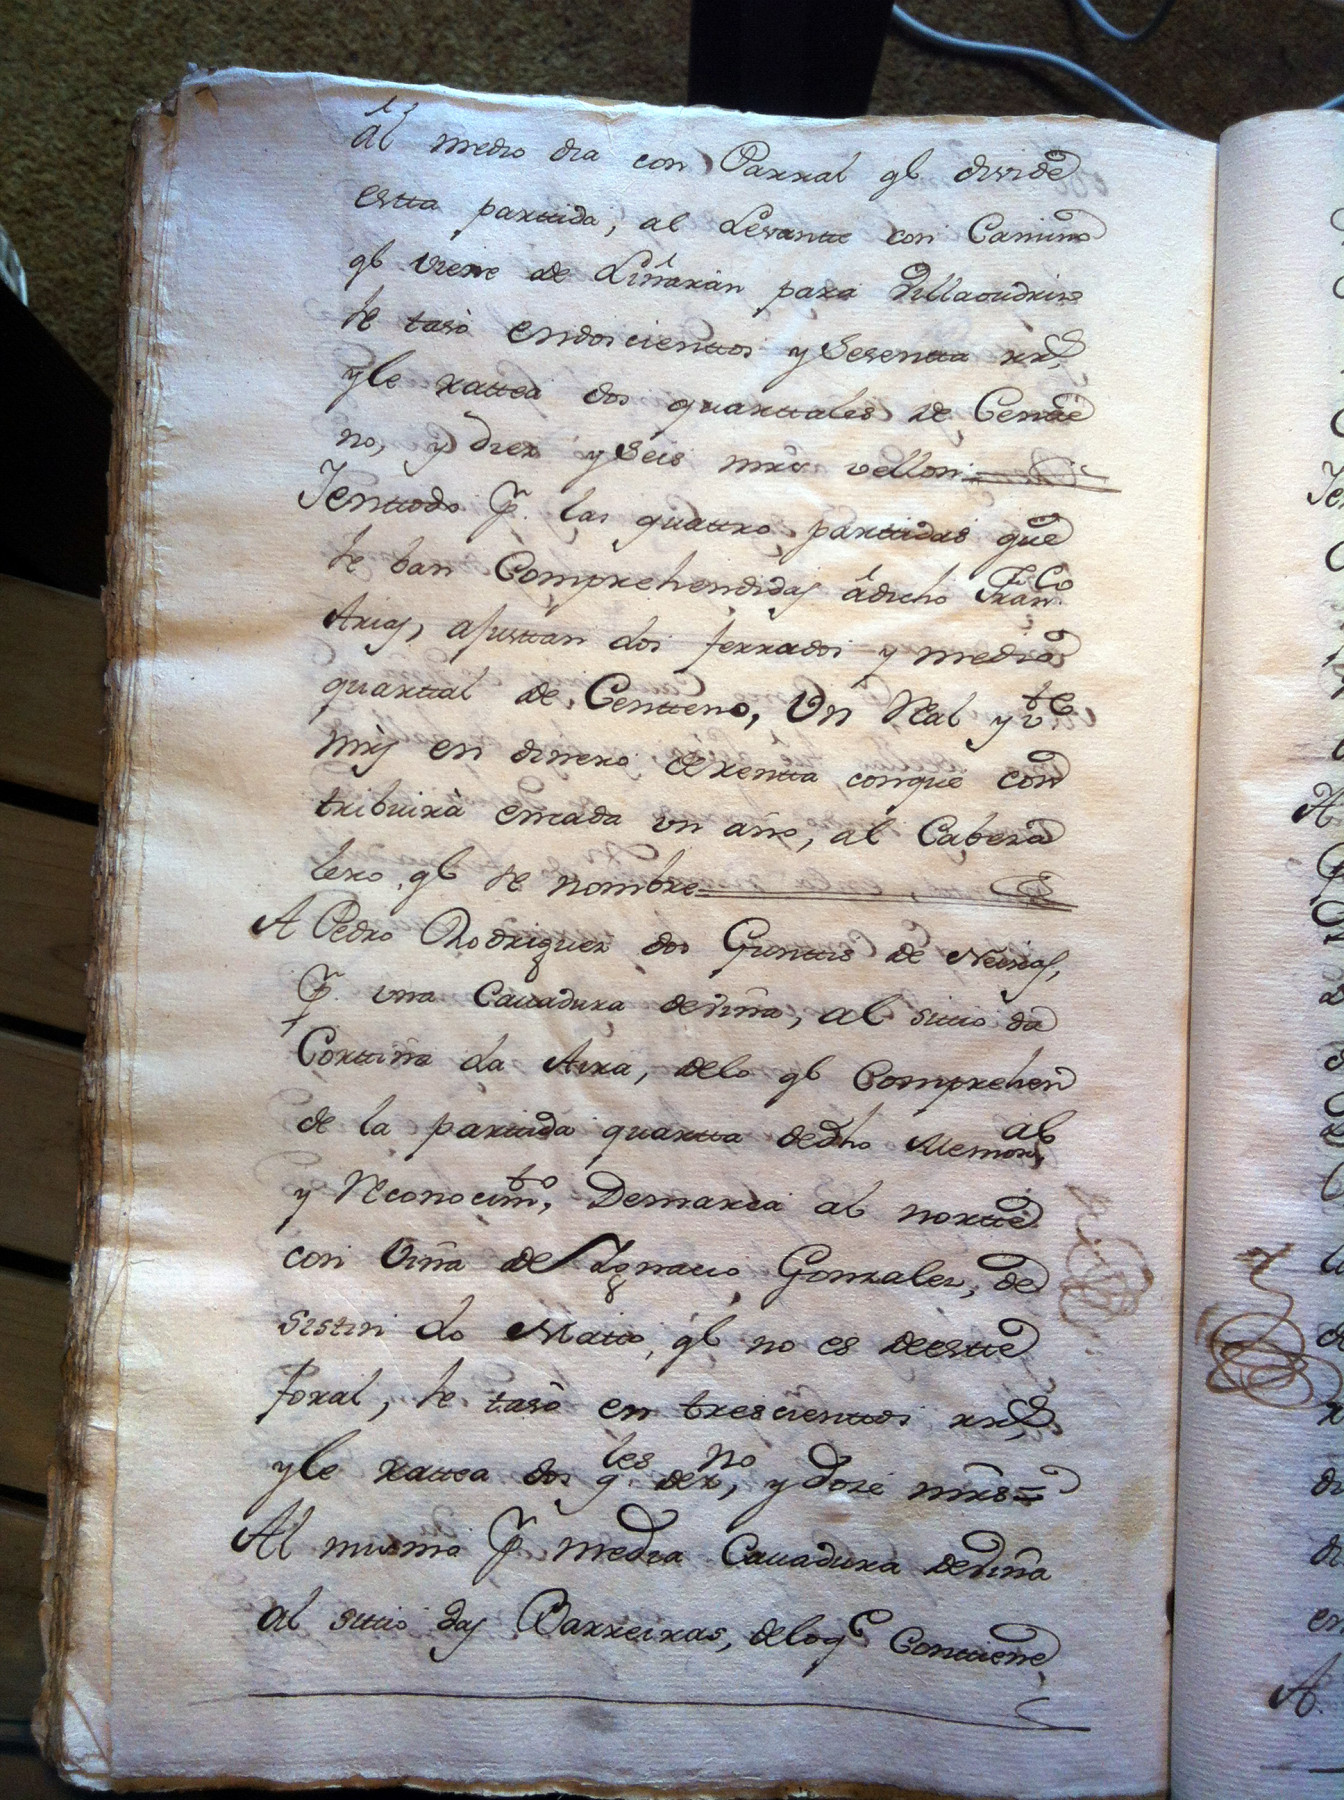 al medio dia con Parral q.e divide
estta parttida, al Levantte con Camino
q.e viene de Liñarán para Villaoudriz
se tasó en doscienttos y sesentta rr.s
y le rattea dos quarttales de Centte
no, y diez y seis mrs vellon
Ientodo p.r las quattro parttidas que
se ban Comprehendidas á dicho Fran.co
Arias, ajusttan dos ferrados y medio
quarttal de Centteno, Un Real y v.te
mrs en dinero de rentta conque con
tribuirá encada un año, al Cabeza
lero q.e se nombre
A Pedro Rodriguez dos Gunttis de Neiras,
p.r una Cauadura deviña, al sittio da
Corttiña da Aira, delo q.e Comprehen
de la parttida quartta dedho Memor.al
y Reconocim.to, Demarca al nortte
con Viña de Ignacio Gonzalez, de
Sistin do Matto, q.e no es deestte
foral, se tasó en trescienttos rr.s
y le rattea dos q.les dez.no, y doze mrs=
Al mismo p.r media Cauadura deviña
al sittio das Barreiras, delo q.e Conttiene